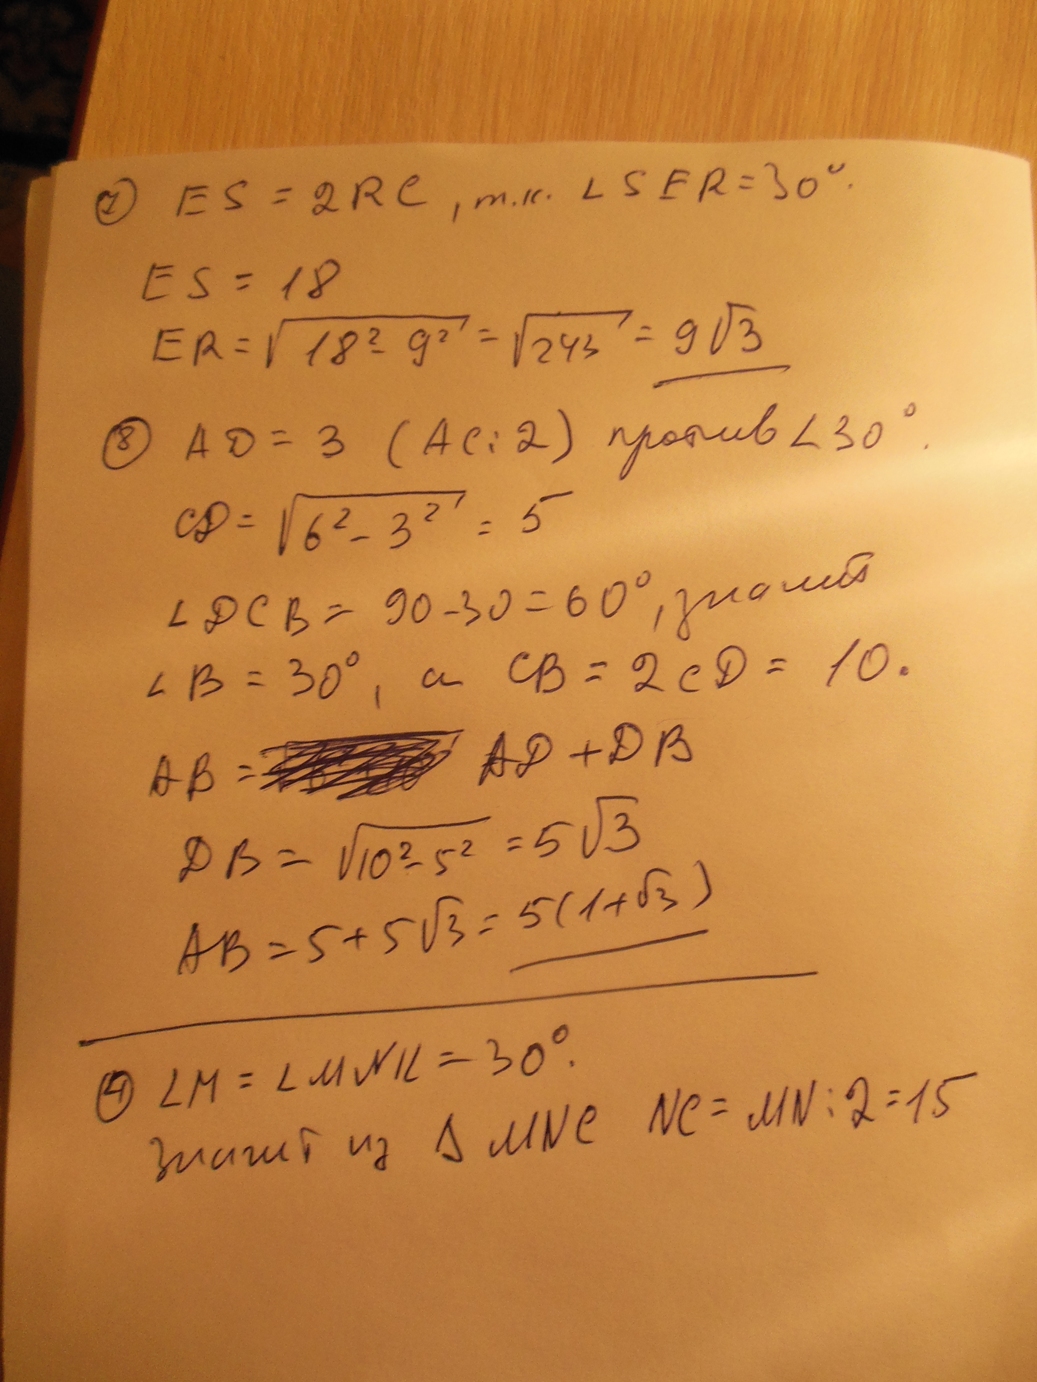 7) ES = 2RC, т.к. ∠SER = 30°.
ES = 18
ER = √(18² - 9²) = √243 = 9√3
8) AD = 3 (AC:2) против ∠30°.
CD = √(6² - 3²) = 5
∠DCB = 90-30 = 60°, значит
∠B = 30°, а CB = 2CD = 10.
AB = AD + DB
DB = √(10² - 5²) = 5√3
AB = 5 + 5√3 = 5(1+√3)
4) ∠M = ∠MNK = 30°.
значит из Δ MNC NC = MN:2 = 15